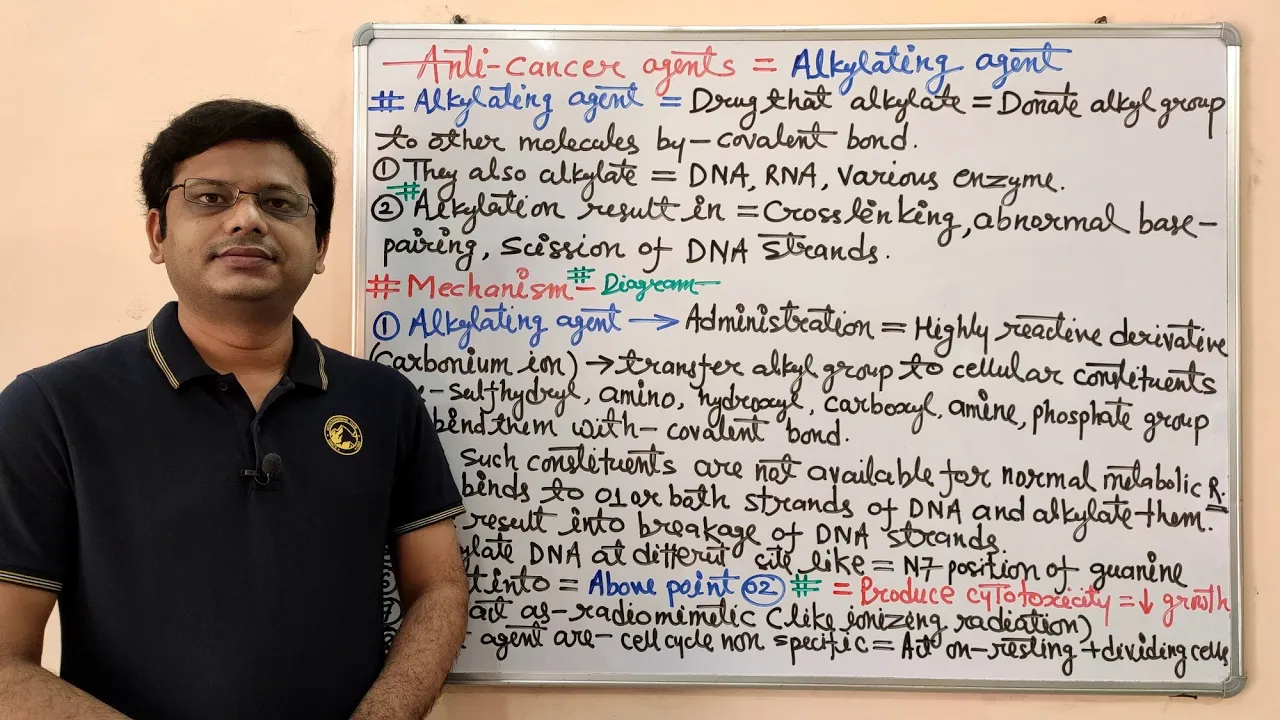 Anti-cancer agents = Alkylating agent
# Alkylating agent = Drug that alkylate = Donate alkyl group
to other molecules by - covalent bond.
① They also alkylate = DNA, RNA, Various enzyme.
② # Alkylation result in = Crosslinking, abnormal base-
pairing, Scission of DNA Strands.
# Mechanism - # Diagram -
① Alkylating agent → Administration = Highly reactive derivative
(Carbonium ion) → transfer alkyl group to cellular constituents
- sulfhydryl, amino, hydroxyl, carboxyl, amine, phosphate group
bind them with - covalent bond.
Such constituents are not available for normal metabolic R.
binds to 01 or both strands of DNA and alkylate them.
result into breakage of DNA strands.
ylate DNA at different site like = N7 position of guanine
t into = Above point 02 # = Produce cytotoxicity = ↓ growth
act as - radiomimetic (like ionizing radiation)
agent are - cell cycle non specific = Act on - resting + dividing cells